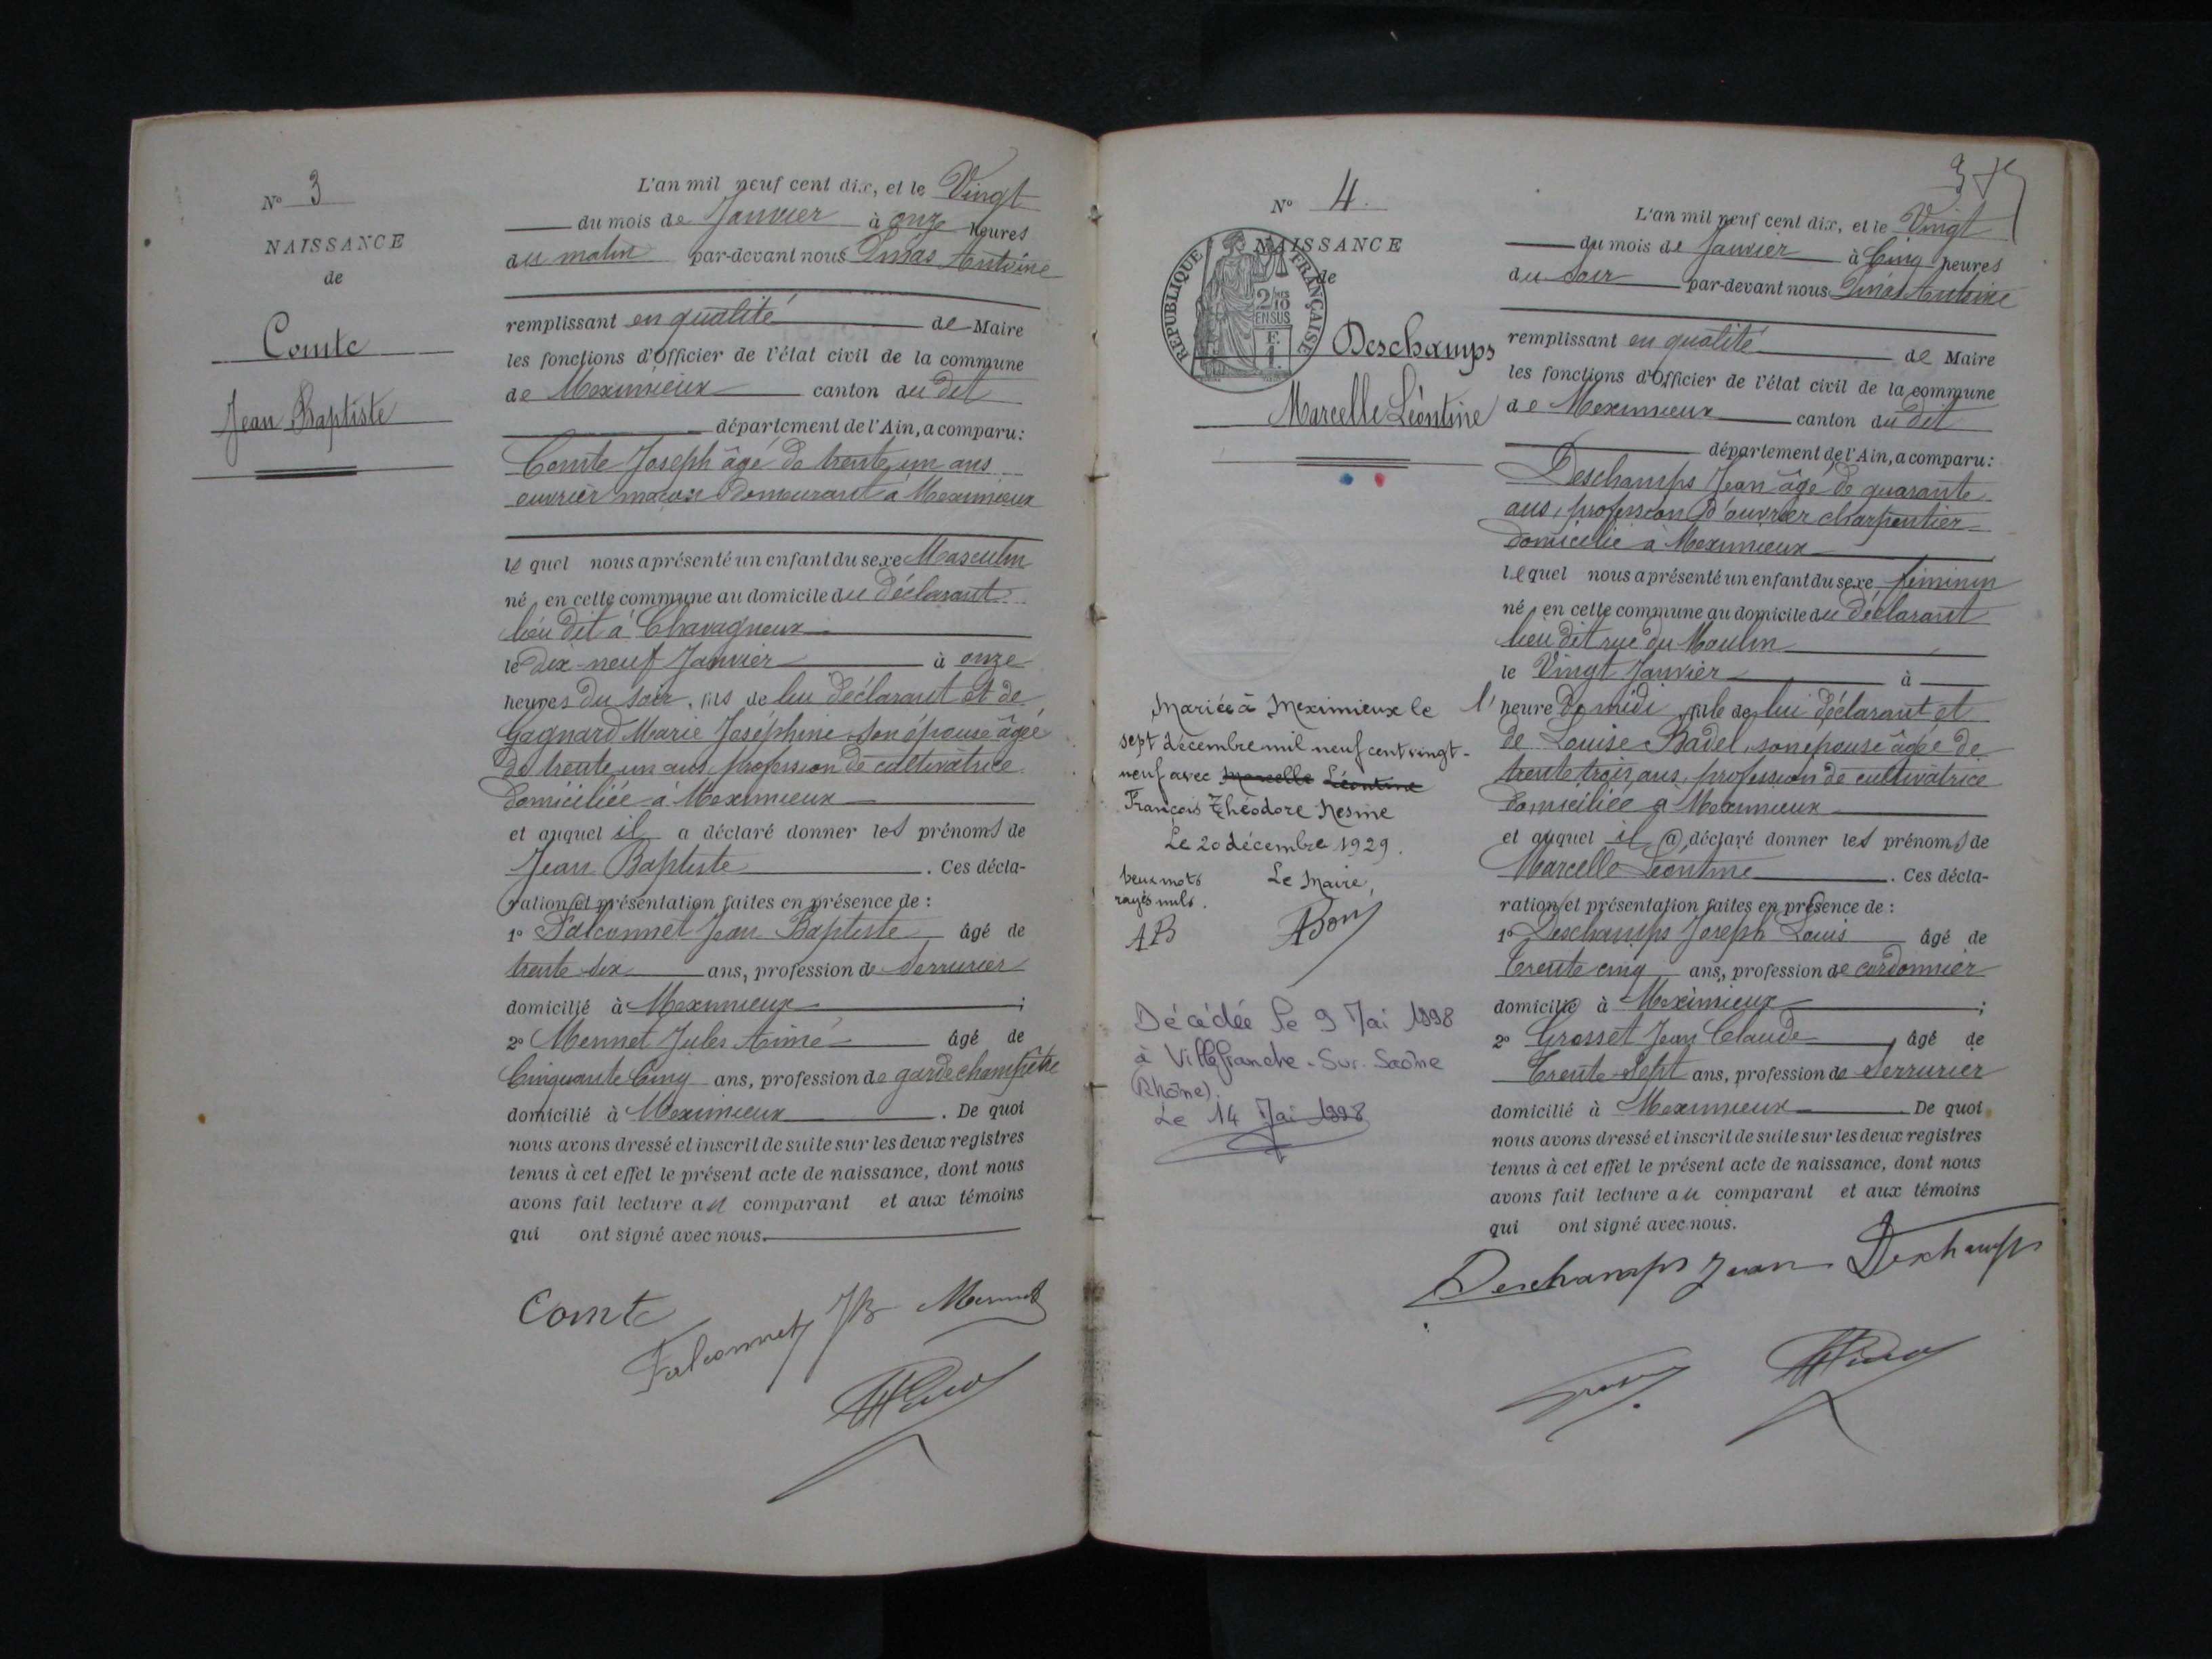 N° 3
NAISSANCE
de
Comte
Jean Baptiste
L'an mil neuf cent dix, et le Vingt
du mois de Janvier à onze heures
du matin par-devant nous Antoine
remplissant en qualité de Maire
les fonctions d'Officier de l'état civil de la commune
de Meximieux canton du dit
département de l'Ain, a comparu:
Comte Joseph âgé de trente un ans
ouvrier maçon demeurant à Meximieux
lequel nous a présenté un enfant du sexe Masculin
né, en cette commune au domicile du déclarant
lieu dit à Chavagneux
le dix-neuf Janvier à onze
heures du soir, fils de lui déclarant et de
Gagnard Marie Joséphine son épouse âgée
de trente un ans, profession de cultivatrice
domiciliée à Meximieux
et auquel il a déclaré donner les prénoms de
Jean Baptiste. Ces décla-
ration et présentation faites en présence de :
1° Falconnet Jean Baptiste, âgé de
trente six ans, profession de Serrurier
domicilié à Meximieux ;
2° Mennet Jules Aimé âgé de
Cinquante Cinq ans, profession de garde champêtre
domicilié à Meximieux. De quoi
nous avons dressé et inscrit de suite sur les deux registres
tenus à cet effet le présent acte de naissance, dont nous
avons fait lecture au comparant et aux témoins
qui ont signé avec nous.
Comte
Falconnet JB Mennet
N° 4.
NAISSANCE
de
REPUBLIQUE FRANÇAISE
2/10 EN SUS
F. 1.
Deschamps
Marcelle Léontine
Mariée à Meximieux le
sept décembre mil neuf cent vingt-
neuf avec Marcelle Léontine
François Théodore Nesme
Le 20 décembre 1929.
Deux mots
rayés nuls.
Le Maire,
AB
Décédée le 9 Mai 1998
à Villefranche-Sur-Saône
(Rhône).
Le 14 Mai 1998
L'an mil neuf cent dix, et le Vingt
du mois de Janvier à Cinq heures
du soir par-devant nous Antoine
remplissant en qualité de Maire
les fonctions d'Officier de l'état civil de la commune
de Meximieux canton du dit
département de l'Ain, a comparu:
Deschamps Jean âgé de quarante
ans, profession d'ouvrier charpentier
domicilié à Meximieux
lequel nous a présenté un enfant du sexe féminin
né, en cette commune au domicile du déclarant
lieu dit rue du Moulin
le Vingt Janvier à
l'heure de midi, fille de lui déclarant et
de Louise Badel, son épouse âgée de
trente trois ans, profession de cultivatrice
domiciliée à Meximieux
et auquel il a déclaré donner les prénoms de
Marcelle Léontine. Ces décla-
ration et présentation faites en présence de :
1° Deschamps Joseph Louis âgé de
trente cinq ans, profession de cordonnier
domicilié à Meximieux ;
2° Grosset Jean Claude, âgé de
Trente-Sept ans, profession de Serrurier
domicilié à Meximieux. De quoi
nous avons dressé et inscrit de suite sur les deux registres
tenus à cet effet le présent acte de naissance, dont nous
avons fait lecture au comparant et aux témoins
qui ont signé avec nous.
Deschamps Jean Deschamps